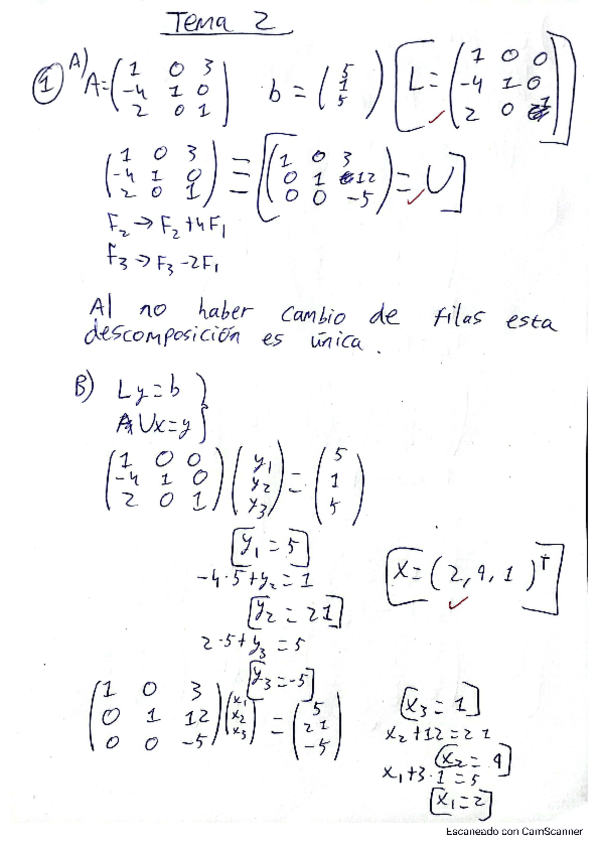 Tema 2
① A) A = (1 0 3 / -4 1 0 / 2 0 1) b = (5 / 1 / 5) [L = (1 0 0 / -4 1 0 / 2 0 1)]
(1 0 3 / -4 1 0 / 2 0 1) = [(1 0 3 / 0 1 12 / 0 0 -5) = U]
F₂ → F₂ + 4F₁
F₃ → F₃ - 2F₁
Al no haber cambio de filas esta
descomposición es única.
B) Ly = b
Ux = y
(1 0 0 / -4 1 0 / 2 0 1) (y₁ / y₂ / y₃) = (5 / 1 / 5)
[y₁ = 5]
-4·5 + y₂ = 1
[y₂ = 21]
2·5 + y₃ = 5
[y₃ = -5]
[X = (2, 9, 1)ᵀ]
(1 0 3 / 0 1 12 / 0 0 -5) (x₁ / x₂ / x₃) = (5 / 21 / -5)
[x₃ = 1]
x₂ + 12 = 21
[x₂ = 9]
x₁ + 3·1 = 5
[x₁ = 2]
Escaneado con CamScanner